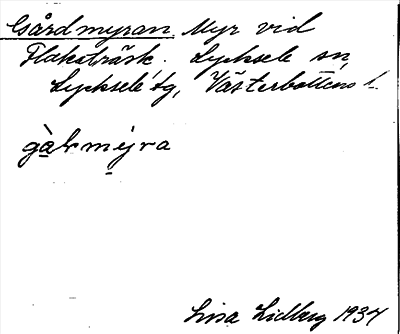 Gårdmyran. Myr vid
Flakaträsk. Lycksele sn,
Lycksele tg, Västerbottens l.
gàlrmýra
Lisa Lidberg 1934